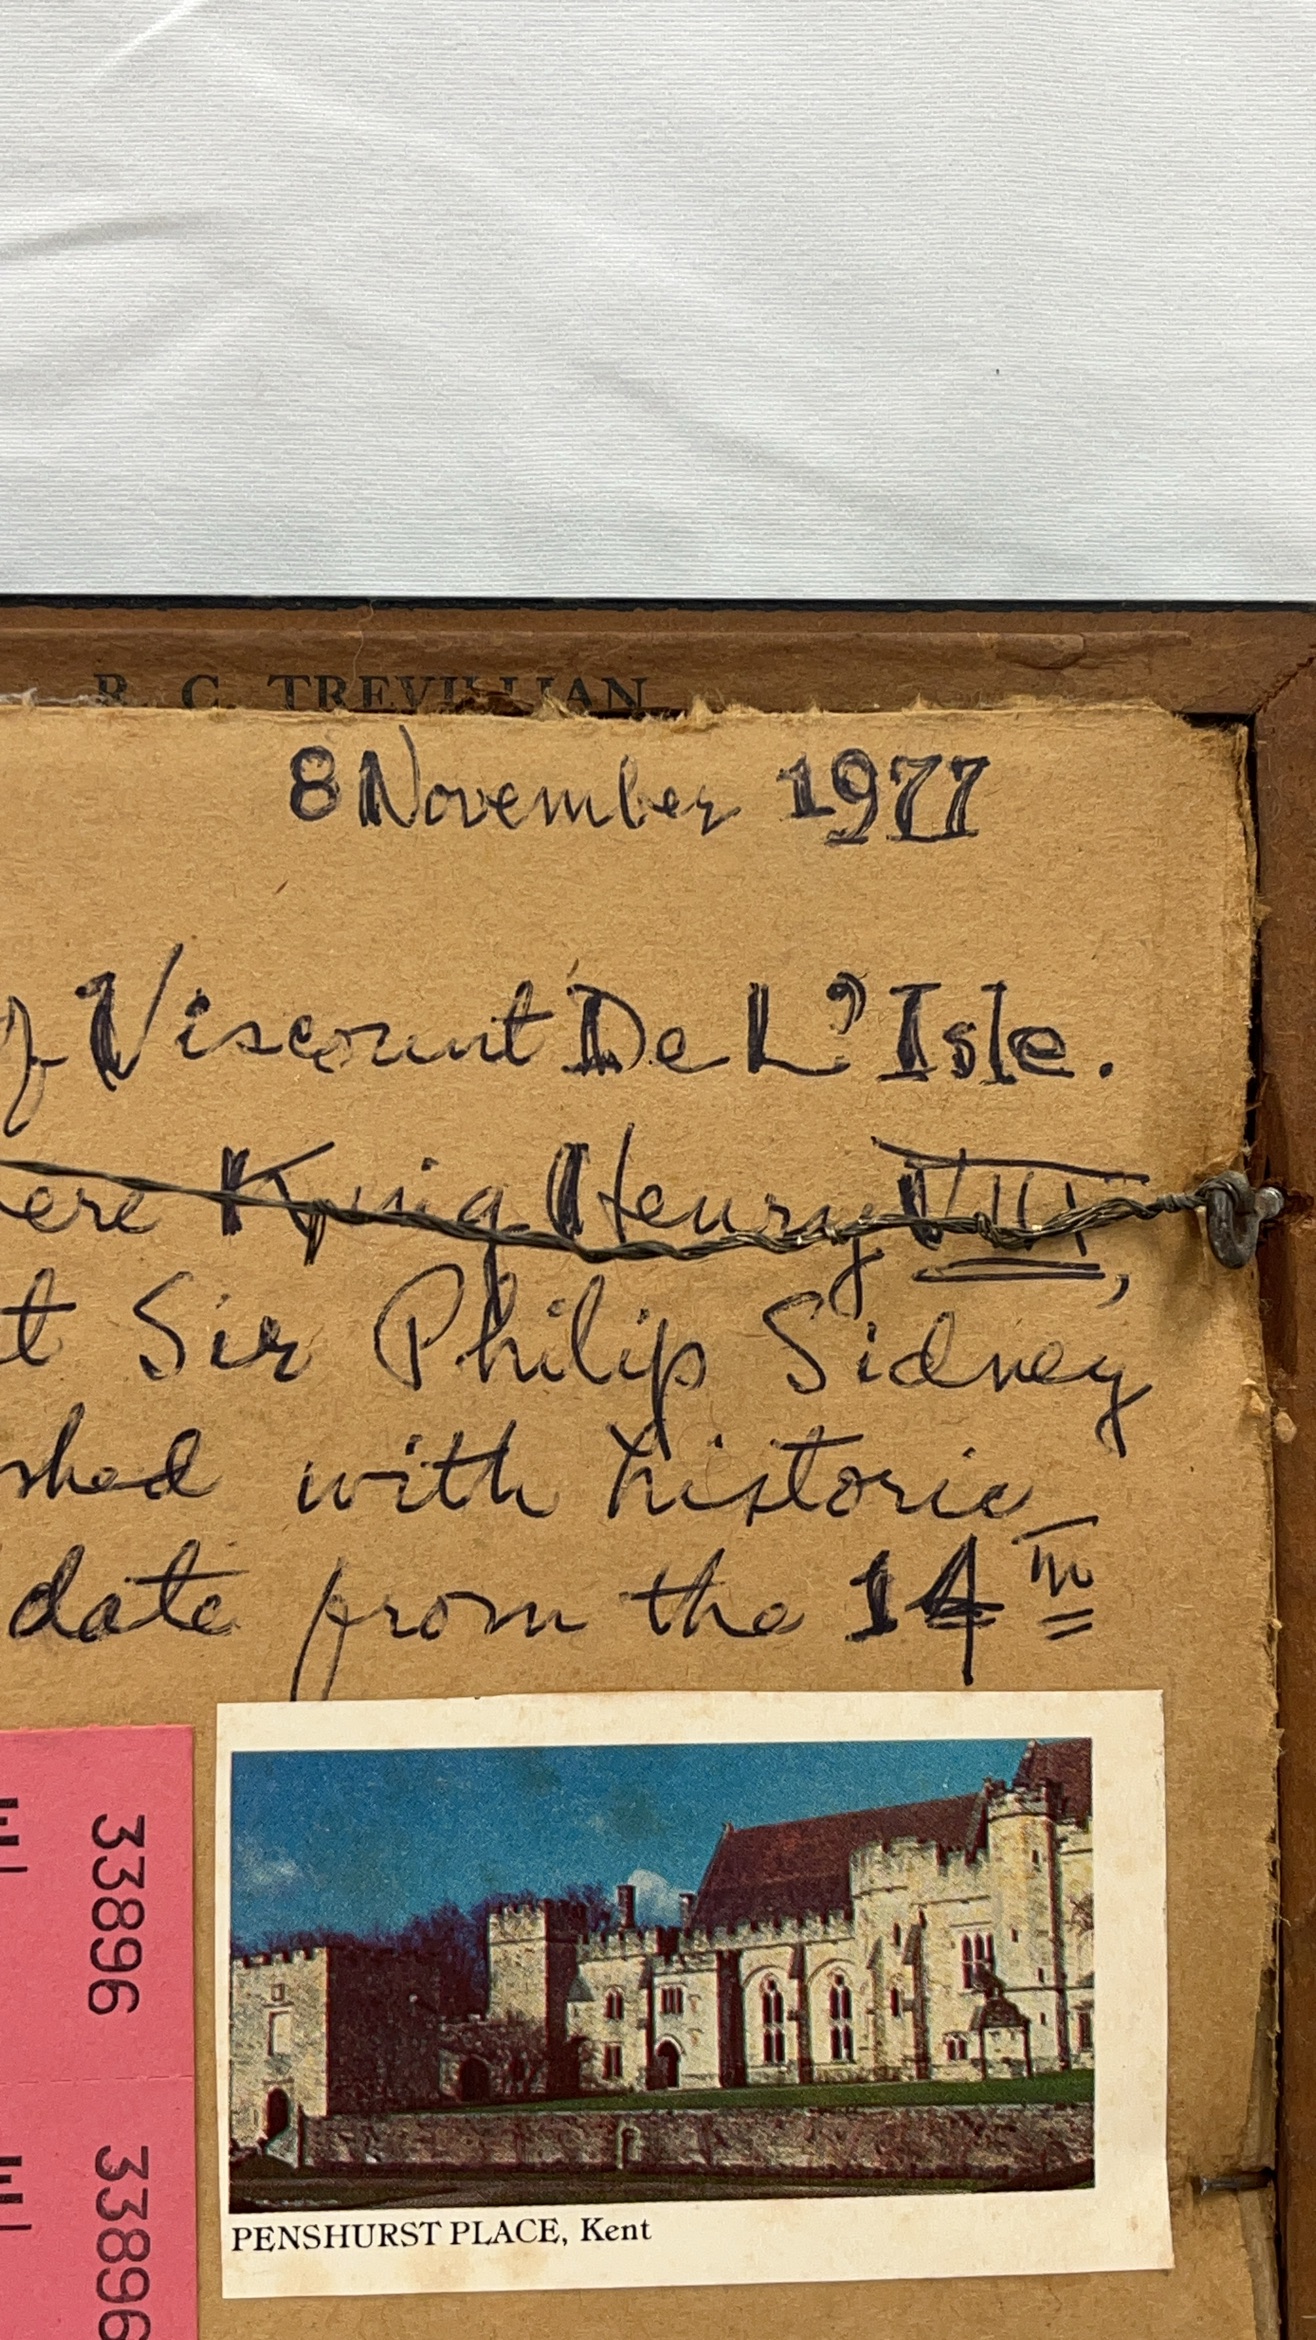 R. C. TREVILLIAN
8 November 1977
of Viscount De L'Isle.
ere King Henry VIII,
t Sir Philip Sidney
shed with historic
date from the 14th
33896
33896
PENSHURST PLACE, Kent